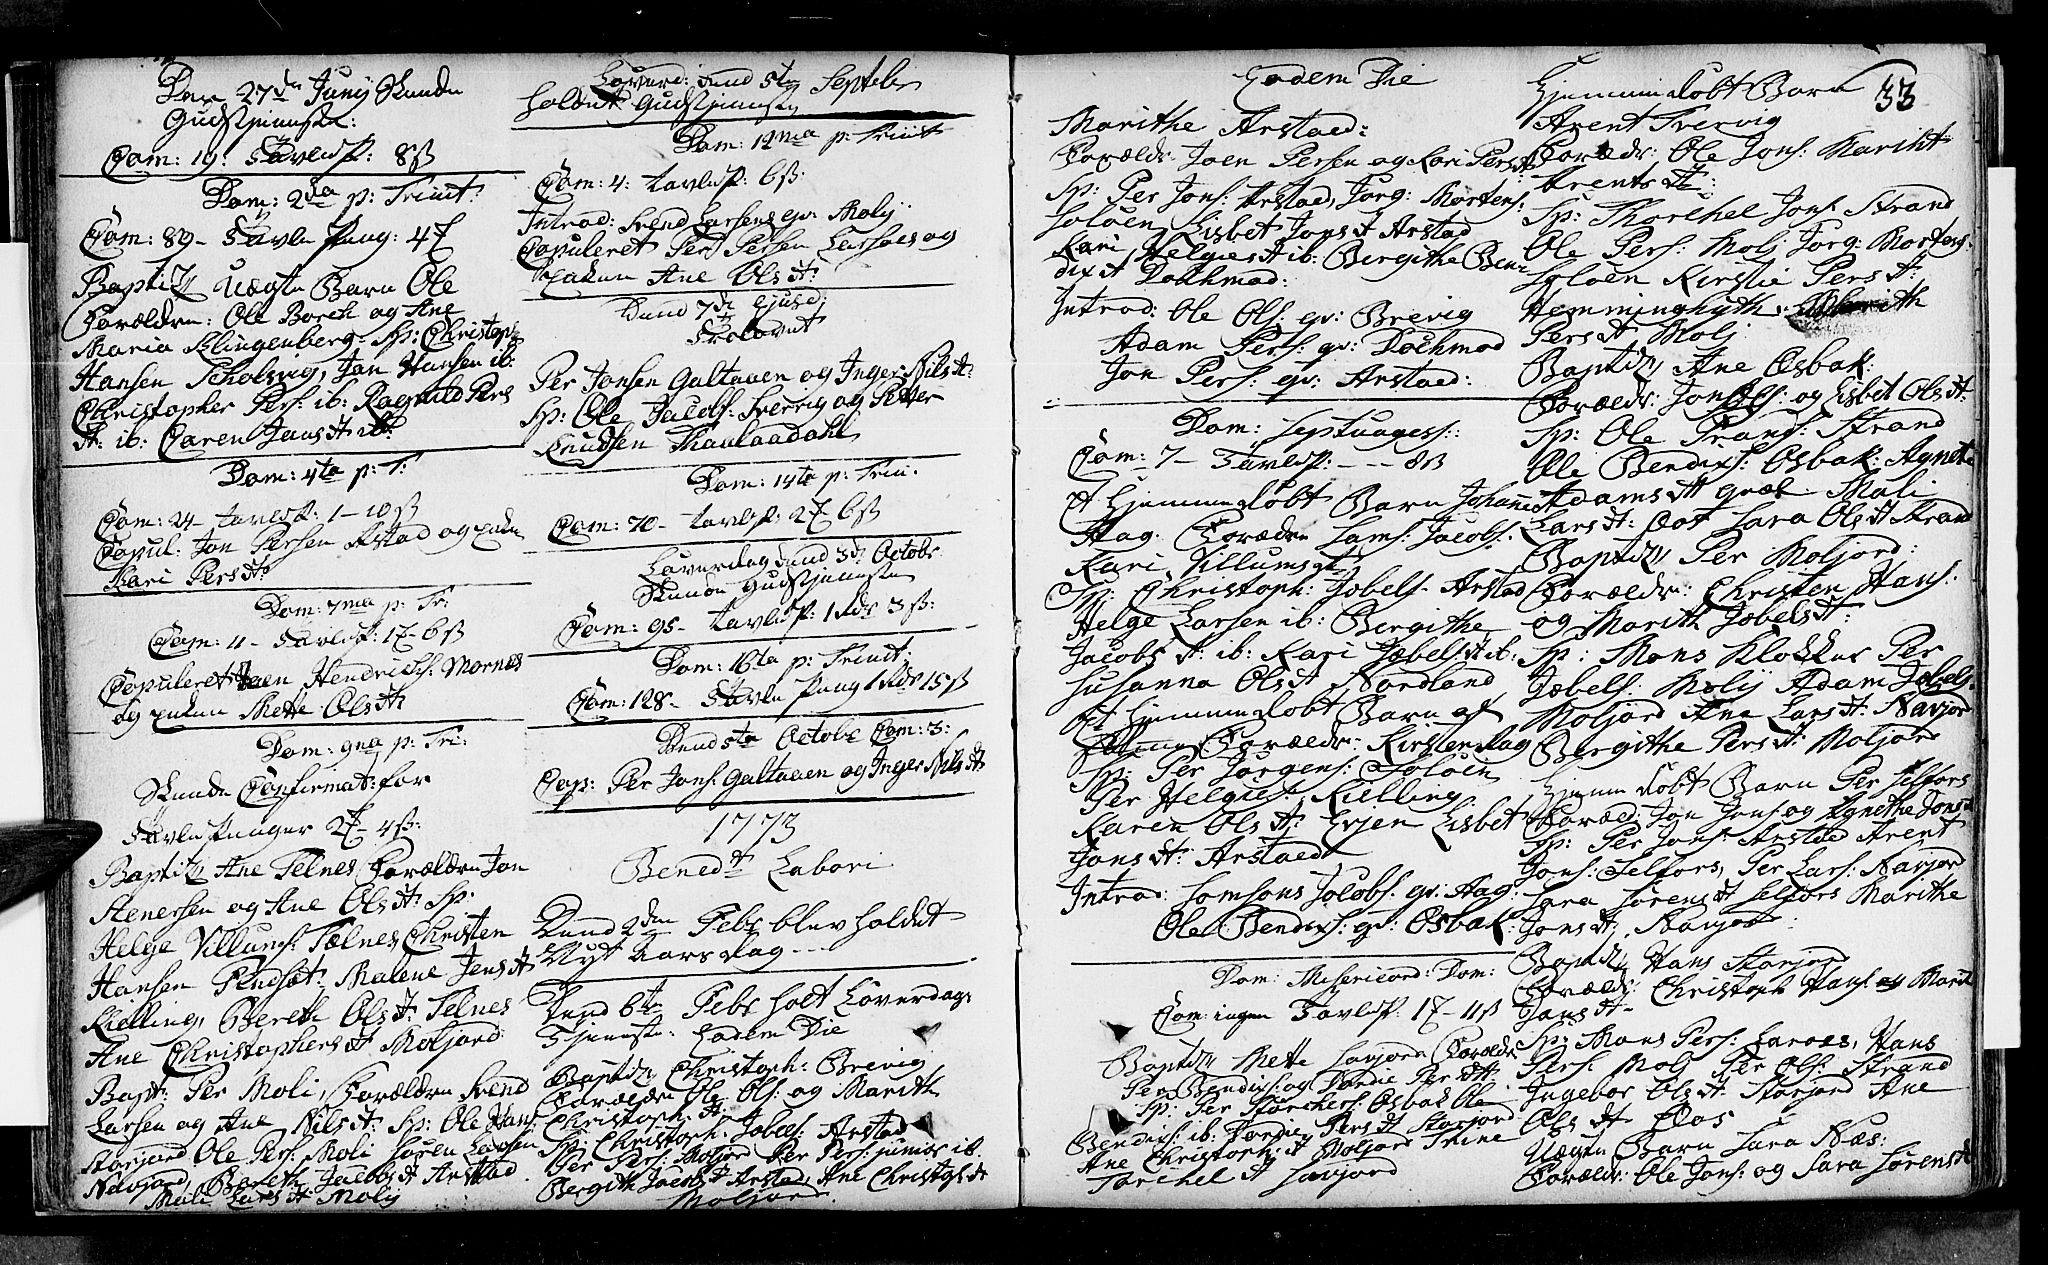 Den 27de Junij Skeede
Gudstjenesten:
Com: 19: Tavlesp: 8ß
Dom: 2da p: Trinit:
Com: 89 - Tavle Peng: 4
Baptiz: Uægte Barn Ole
Forældre: Ole Boreth og Ane
Maria Klingenberg. Sp: Christoph
Hansen Scholvig, Jon Hansen ib:
Christopher Pers: ib: Ragnild Pers
dt: ib: Caren Jans dt ib:
Dom: 4ta p: T:
Com: 24 - Tavlesp: 1 - 10ß
Copul: Jon Persen Arstad og
Kari Persdt:
Dom: 7ma p: Tr:
Com: 11 - Tavlesp: 1 - 6ß
Copuleret Hendrichs: Mornes
og Mette Olsdt:
Dom: 9na p: Tri:
Skeede Confirmat: for
Tavle Penger 2 - 4ß:
Baptiz: Ane Telnes Forældre Jon
Stenersen og Ane Olsdt: Sp:
Helge Villums: Telnes Christen
Hansen Malene Jensdt
Kielling, Bereth Olsdt: Telnes
Ane Christophersdt Moljord:
Bapt: Per Moli, Forældre Svend
Larsen og Ane Nilsdt: Sp: Ole Hans:
Storjord Ole Pers: Moli Søren Larsen
Navjord, Bereth Jacobsdt Arstad
Mali Larsdt Molij
Løverd: dend 5te Septebr
holdt Gudstjeneste
Dom: 12ma p: Trinit
Com: 4: Tavlesp: 6ß:
Introd: Svend Larsens qv: Molij
Copuleret Per Persen Larsoes og
Ane Olsdt:
Dend 7de ejusd:
Trolovet
Per Jonsen Galtaaen og Inger Nilsdt:
Sp: Ole Jacobs: Svervig og Petter
Knudsen
Dom: 14ta p: Trin:
Com: 70 - Tavlsp: 2 6ß
Løverdag dend 3de Octobr
Skeede Gudstjeneste
Com: 95 - Tavlsp: 1 Rdr 3ß:
Dom: 16ta p: Trinit:
Com: 128 - Tavle Peng 1 Rdr 15ß
Dend 5te Octobr Com: 3:
Cop: Per Jons: Galtaaen og Inger Nilsdt
1773
Bened: Labori
Dend 2den Febr blev holdet
Nyt Aarsdag - - -
Dend 6te Febr holt Løverdags
Tjeneste: Eodem Die
Baptiz: Christoph: Brevig
Forældre Ole Ols: og Marith
Christoph: dt
Sp: Christoph: Jobels: Arstad
Per Pers: Moljord Per Pers: junior ib.
Bergith Jacobsdt Arstad, Ane Christophsdt
Moljord
Eodem Die
Marithe Arstad:
Forældr: Joen Persen og Kari Persdt
Sp: Per Jons: Arstad, Jørg: Mortens:
Soløen Lisbet Jonsdt Arstad
Kari Helgiesdt ib: Bergithe Ben
dixdt Dochmod:
Introd: Ole Ols: qv: Brevig
Adam Pers: qv: Dochmod
Jon Pers: qv: Arstad:
Dom: Septuages:
Com: 7 - Tavlesp: - - - 8ß
Et Hjemmedøbt Barn Johanne
Hag. Forældre Sams: Jacobs:
Kari Villumsdt:
Sp: Christoph: Jobels: Arstad
Helge Larsen ib: Bergithe
Jacobsdt: ib: Kari Jobelsdt ib:
Susanna Olsdt Nordland
Et Hjemmedøbt Barn af
Forældr: Kirsten Hag
Sp: Per Jørgens: Soløen
Per Helgies: Kielling
Karen Olsdt: Evjen Lisbet
Jonsdt: Arstad
Introd: Somsons Jacobs: qv: Hag:
Ole Bendixs: qv: Osbak:
Dom: Misericord: Dom:
Com: ingen Tavlesp: 1 - 11ß
Baptiz Mette Savjord Forældr
Per Bendixs: og Dordie Persdt
Sp: Per Storchers: Osbak Ole
Bendixs: ib: Dordie Persdt Storjord
Ane Christoph: dt Moljord Trine
Torcheldt Savjord
33
Hjemmedøbt Barn
Arent Svervig
Forældr: Ole Jons: Marith
Arentsdt:
Sp: Thorchel Jons: Strand
Ole Pers: Molj Jørg: Mortens.
Soløen Kirstie Persdt:
Hemminghyth: Marith
Persdt Molj
Baptiz: Ane Osbak:
Forældr: Jon Ols: og Lisbet Olsdt:
Sp: Ole Frans: Strand
Ole Bendixs: Osbak: Agnet
Adamsdt Moli
Larsdt: Oos Sara Olsdt Strand
Baptiz: Per Moljord:
Forældr: Christen Hans:
og Marith Jobelsdt:
Sp: Mons Klokker Per
Jobels: Molij Adam Jobels:
Moljord Ane Larsdt: Navjor
Bergithe Persdt: Moljord
Hjemmedøbt Barn Per Selfors
Foræld: Jon Jons: og Agnethe Jonsd
Sp: Per Jons: Arstad Arent
Jons: Selfors, Per Lars: Navjord
Sara Sørensdt Selfors Marithe
Jonsdt: Navjor
Baptiz: Hans Storjord
Forældr: Christoph Hans: og Marit
Jansdt.
Sp: Mons Pers: Larøes, Hans
Pers: Molj Per Ols: Strand
Ingebor Olsdt: Storjord Ane
Olsdt Oos
Uægte Barn Sara Næs:
Forældr: Ole Jons: og Sara Sørensdt